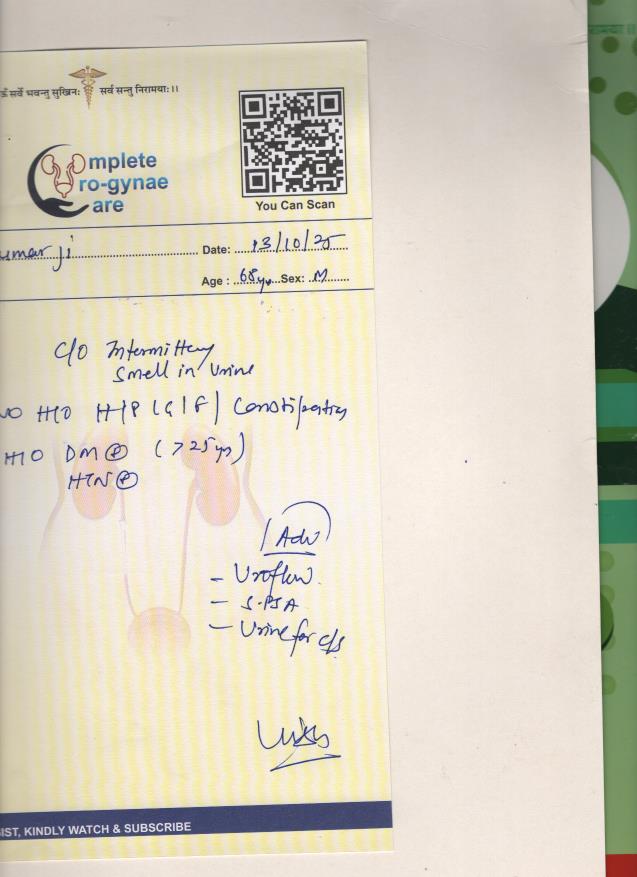 ॐ सर्वे भवन्तु सुखिनः सर्व सन्तु निरामयाः।।
mplete
ro-gynae
are
You Can Scan
umar ji Date: 13/10/25
Age : 68yr Sex: M
C/O Intermittency
Smell in Urine
NO H/O H/P/G/F/ Constipation
H/O DM ⊕ (>25yr)
HTN ⊕
Adv
- Uroflow.
- S.PSA
- Urine for c/s
IST, KINDLY WATCH & SUBSCRIBE